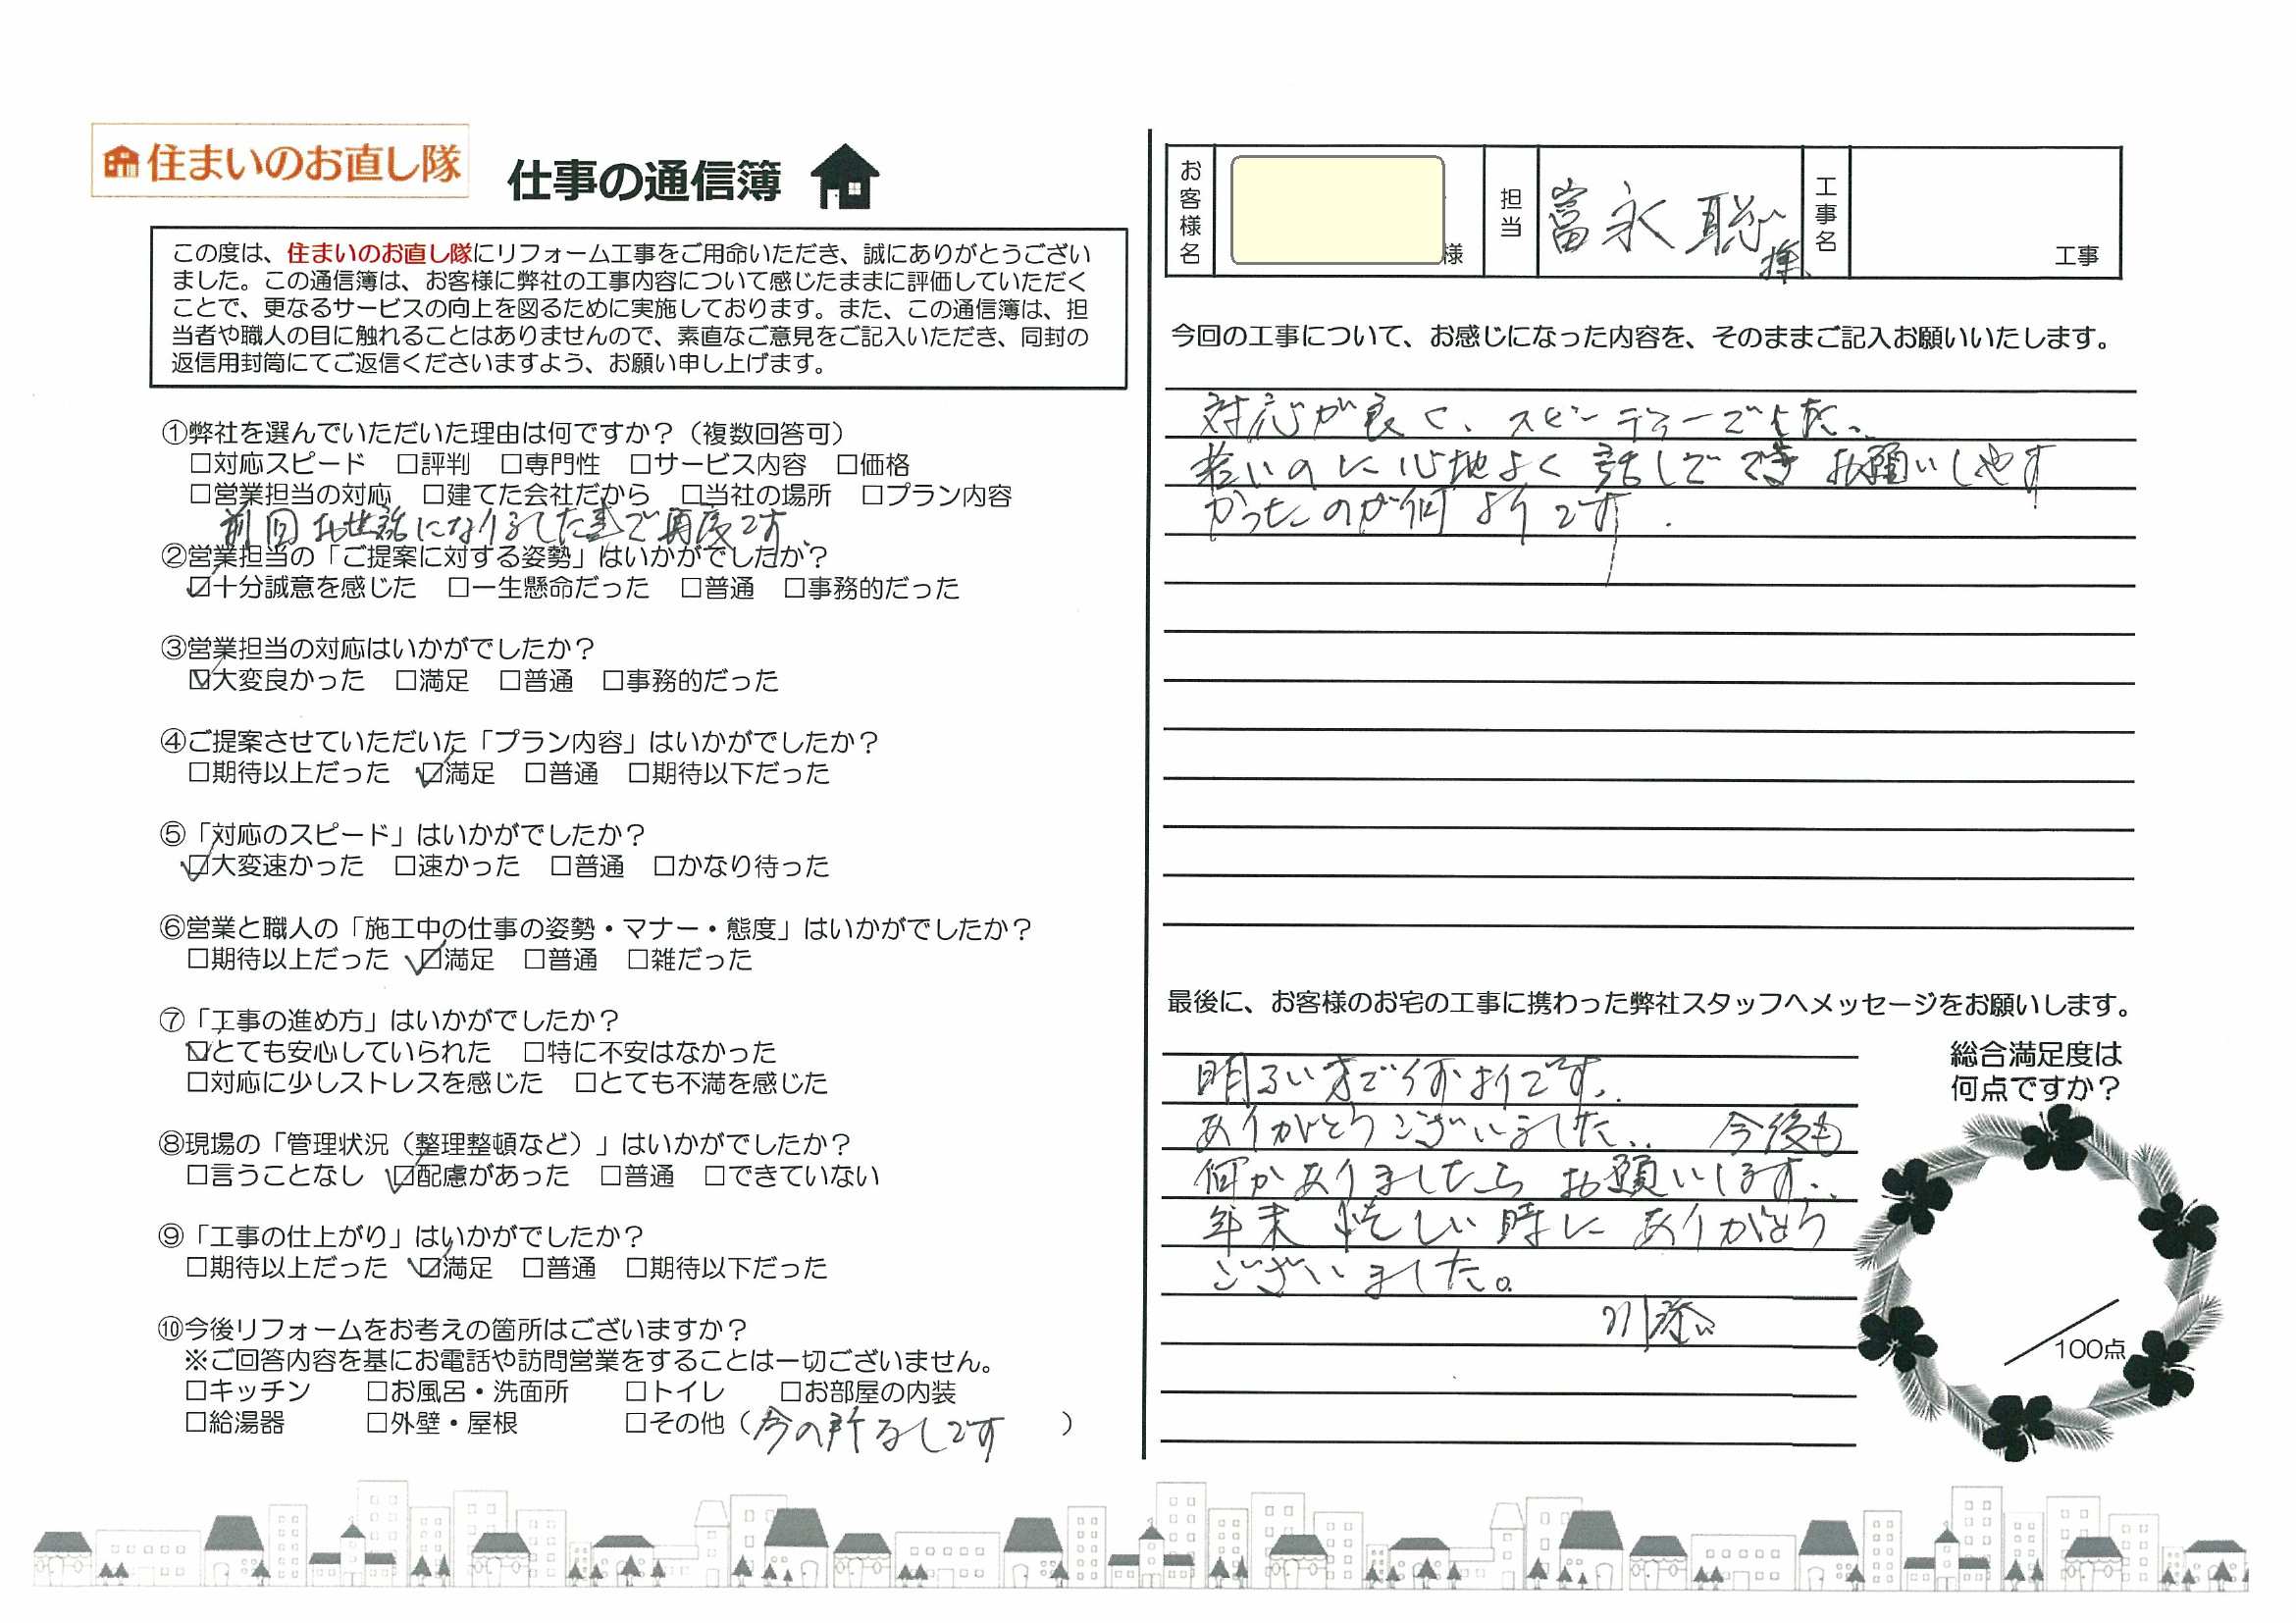 住まいのお直し隊
仕事の通信簿
この度は、住まいのお直し隊にリフォーム工事をご用命いただき、誠にありがとうござい
ました。この通信簿は、お客様に弊社の工事内容について感じたままに評価していただく
ことで、更なるサービスの向上を図るために実施しております。また、この通信簿は、担
当者や職人の目に触れることはありませんので、素直なご意見をご記入いただき、同封の
返信用封筒にてご返信くださいますよう、お願い申し上げます。
①弊社を選んでいただいた理由は何ですか？（複数回答可）
□対応スピード □評判 □専門性 □サービス内容 □価格
□営業担当の対応 □建てた会社だから □当社の場所 □プラン内容
前回お世話になりました事で再度です。
②営業担当の「ご提案に対する姿勢」はいかがでしたか？
☑十分誠意を感じた □一生懸命だった □普通 □事務的だった
③営業担当の対応はいかがでしたか？
☑大変良かった □満足 □普通 □事務的だった
④ご提案させていただいた「プラン内容」はいかがでしたか？
□期待以上だった ☑満足 □普通 □期待以下だった
⑤「対応のスピード」はいかがでしたか？
☑大変速かった □速かった □普通 □かなり待った
⑥営業と職人の「施工中の仕事の姿勢・マナー・態度」はいかがでしたか？
□期待以上だった ☑満足 □普通 □雑だった
⑦「工事の進め方」はいかがでしたか？
☑とても安心していられた □特に不安はなかった
□対応に少しストレスを感じた □とても不満を感じた
⑧現場の「管理状況（整理整頓など）」はいかがでしたか？
□言うことなし ☑配慮があった □普通 □できていない
⑨「工事の仕上がり」はいかがでしたか？
□期待以上だった ☑満足 □普通 □期待以下だった
⑩今後リフォームをお考えの箇所はございますか？
※ご回答内容を基にお電話や訪問営業をすることは一切ございません。
□キッチン □お風呂・洗面所 □トイレ □お部屋の内装
□給湯器 □外壁・屋根 □その他（今の所なしです）
お客様名 様 担当 富永 聡 様 工事名 工事
今回の工事について、お感じになった内容を、そのままご記入お願いいたします。
対応が良く、スピーディーでした。
若いのに心地よく話しでき お願いしやす
かったのが何よりです。
最後に、お客様のお宅の工事に携わった弊社スタッフへメッセージをお願いします。
明るい方で何よりです。
ありがとうございました。 今後も
何かありましたら お願いします。
年末 忙しい時に ありがとう
ございました。
川添
総合満足度は
何点ですか？
100点